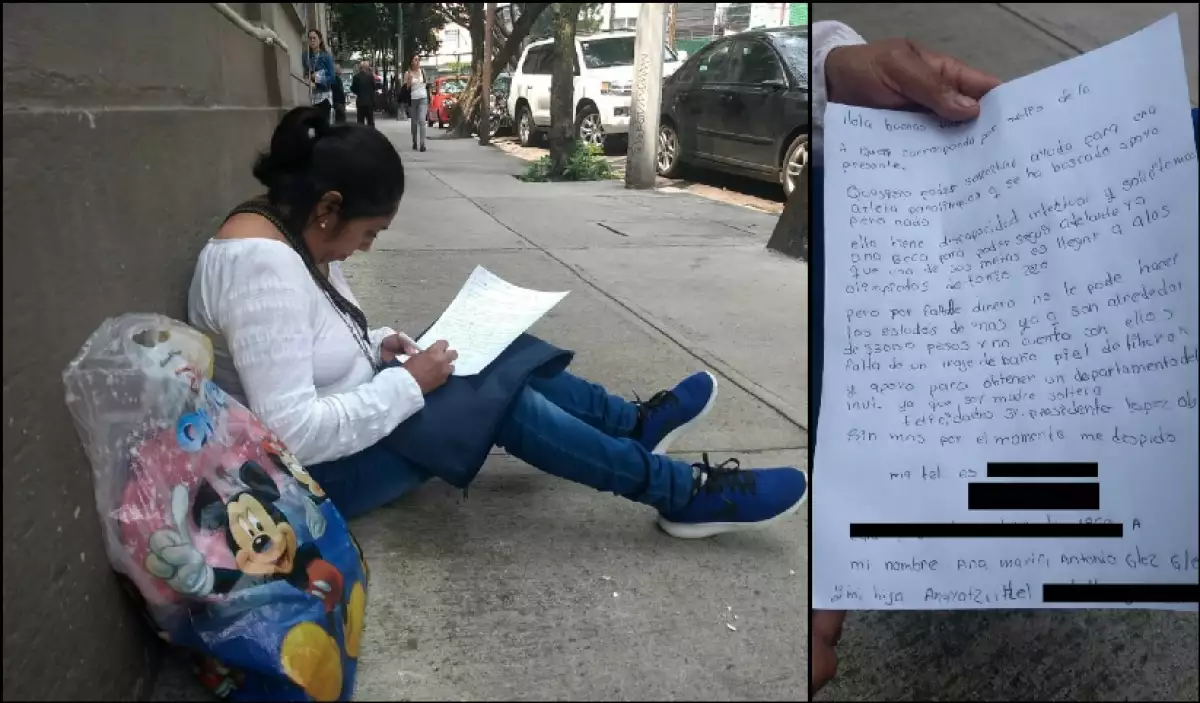 Hola buenas
A quien corresponda por medio de la
presente.
Quisiera poder solicitar ayuda para una
atleta paralimpica q se ha buscado apoyo
pero nada
ella tiene discapacidad intelectual y solicitamos
una Beca para poder seguir adelante ya
que una de sus metas es llegar a a los
olimpiadas de tokio 2020
pero por falta de dinero no le pude hacer
los estudios de ya q son alrededor
de pesos y no cuento con ellos
falta de un traje de baño piel de tiburon
y apoyo para obtener un departamento del
invi. ya que soy madre soltera
felicidades Sr. presidente Lopez Ob
Sin mas por el momento me despido
mi tel. es
A
mi nombre Ana Antonio Glez
mi hija